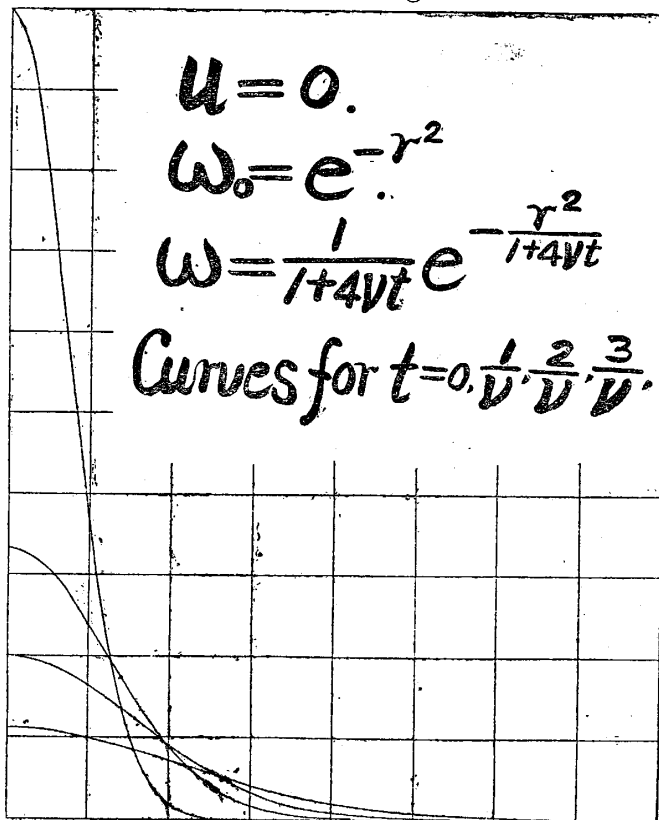 u = 0.
ω₀ = e^{-r²}.
ω = \frac{1}{1+4νt} e^{-\frac{r²}{1+4νt}}
Curves for t = 0, \frac{1}{ν}, \frac{2}{ν}, \frac{3}{ν}.